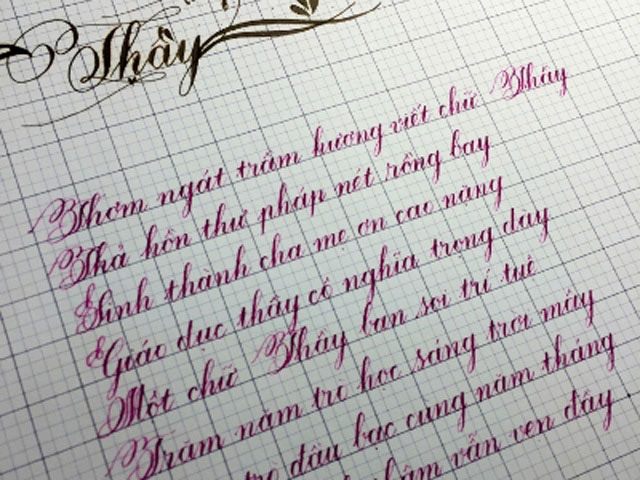 Thầy
Thơm ngát trầm hương viết chữ Thầy
Thả hồn thư pháp nét rồng bay
Sinh thành cha mẹ ơn cao nặng
Giáo dục thầy cô nghĩa trọng dày
Một chữ Thầy ban soi trí tuệ
Trăm năm trò học sáng trời mây
đầu bạc cùng năm tháng
vẫn vẹn đây